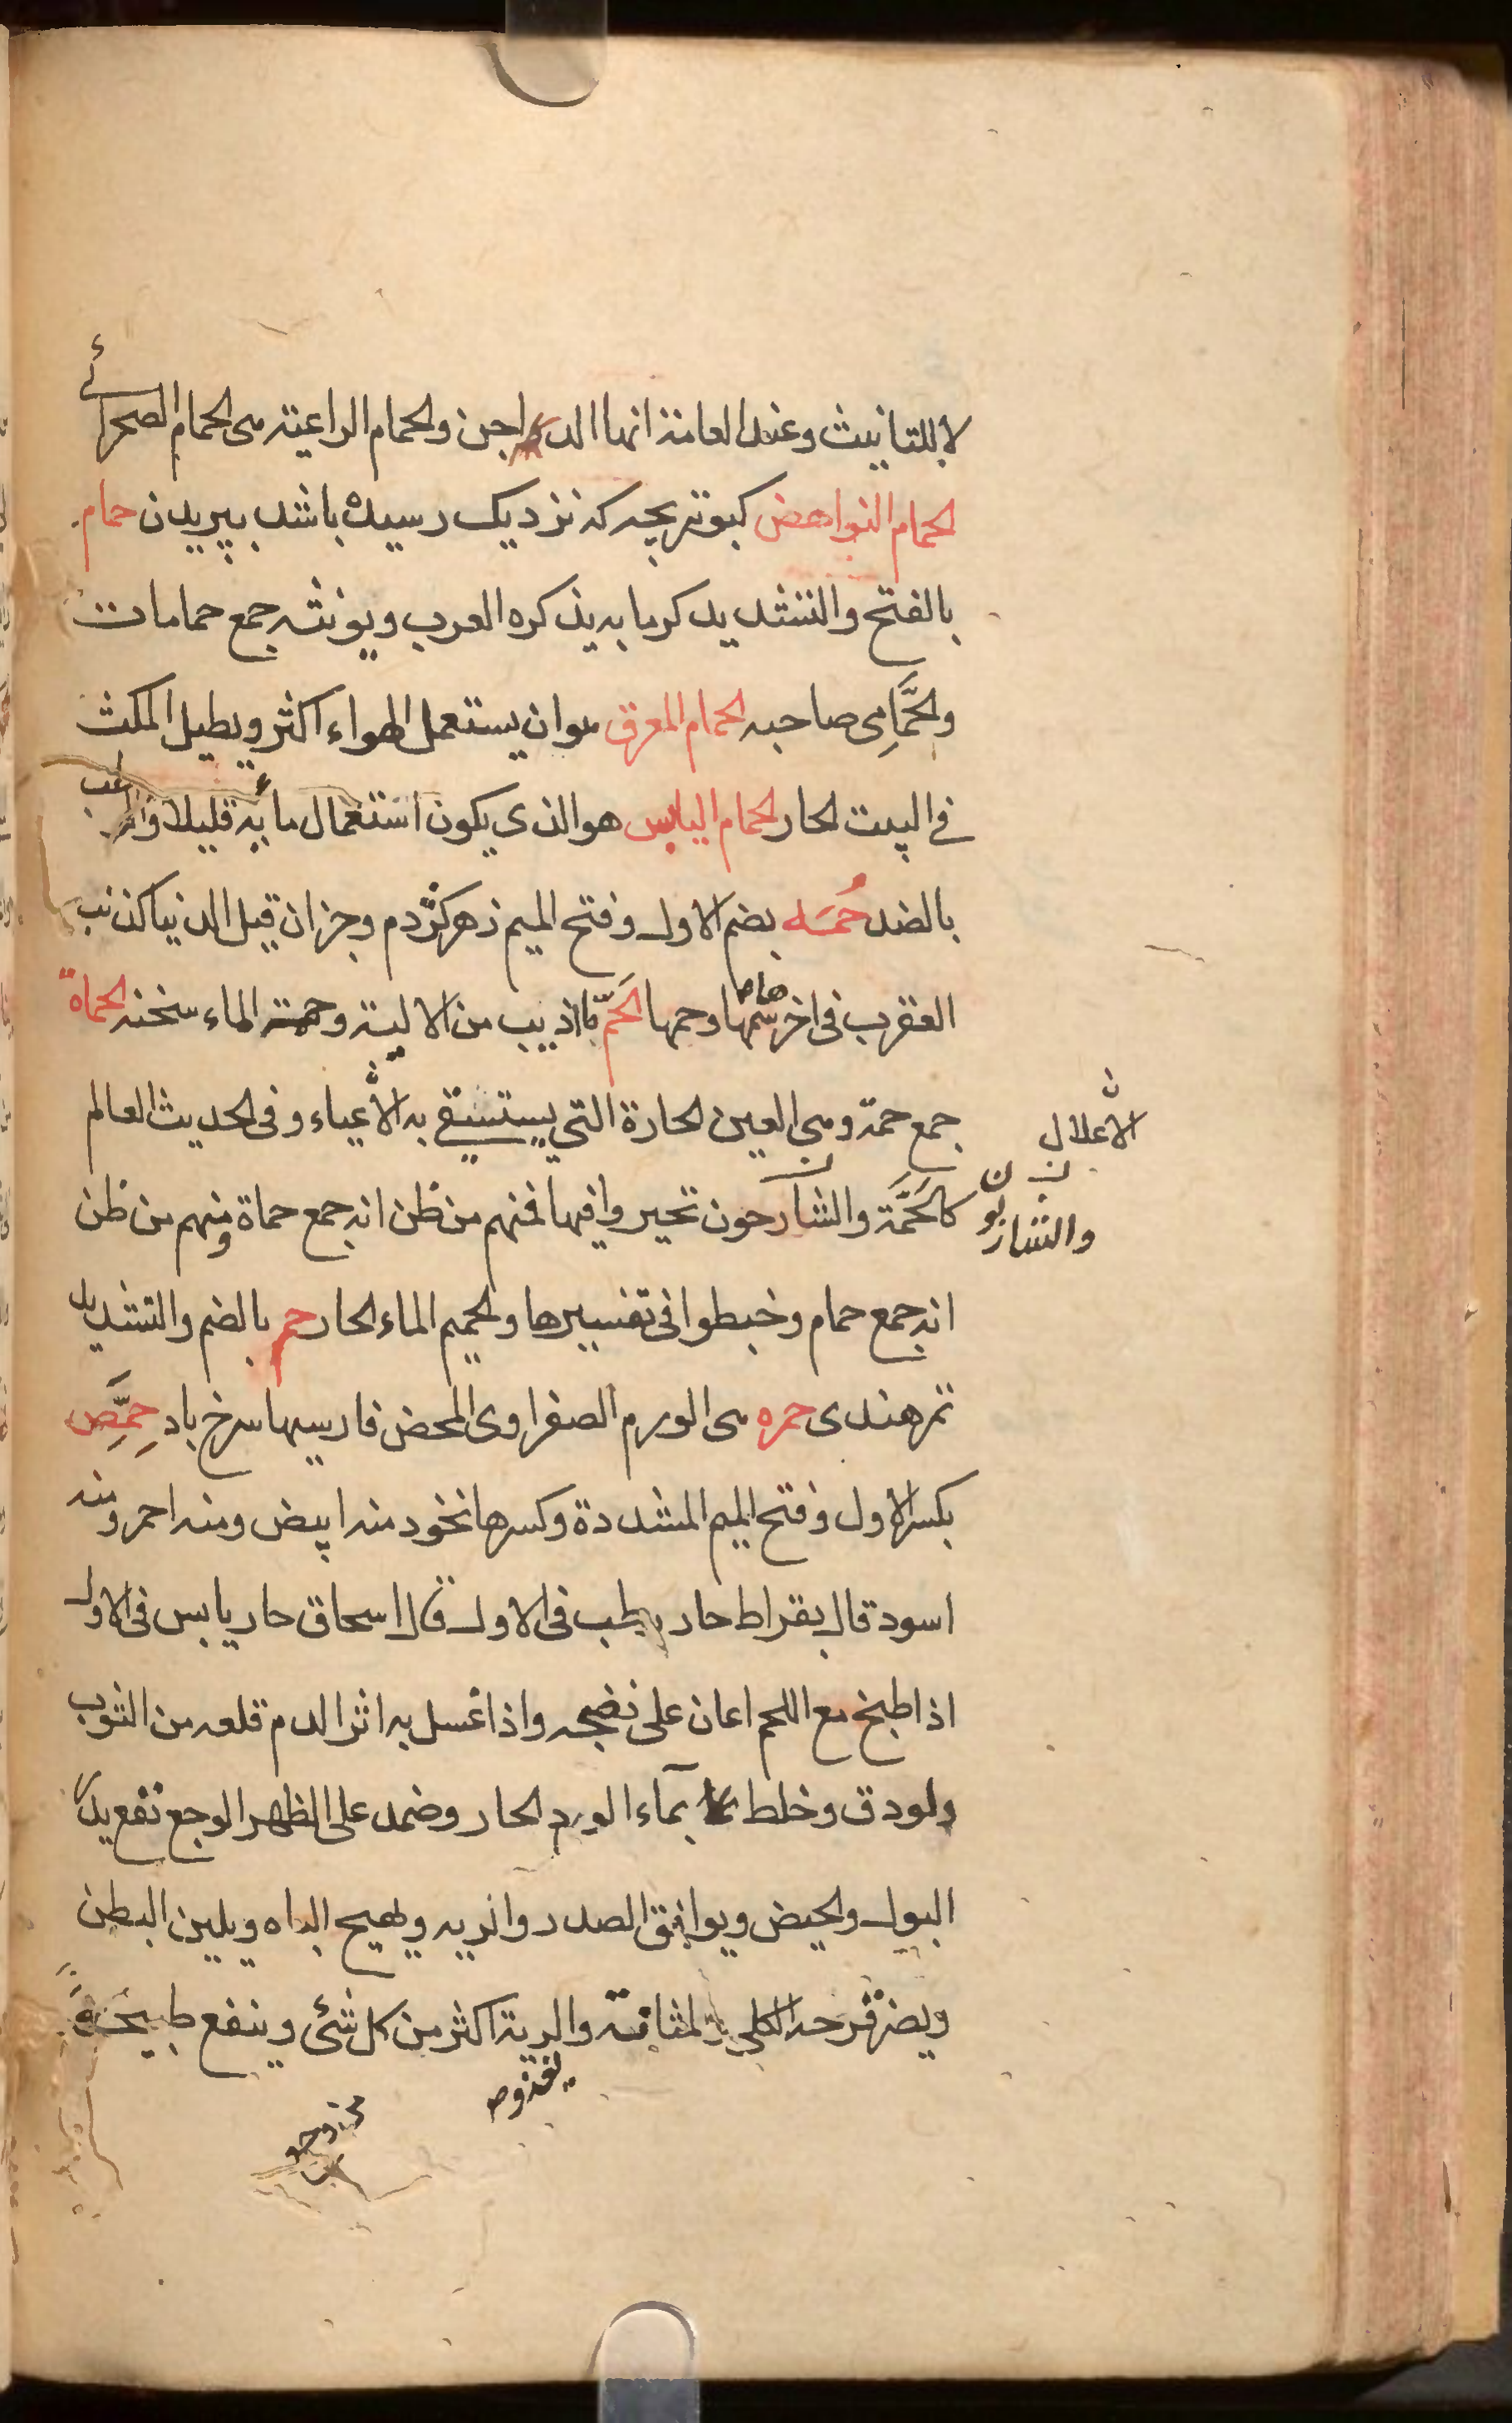 لا للتانيث وعند العامة انها الدواجن والحمام الراعية هى الحمام الصحرائے
الحمام النواهض كبوتر بچه كه نزديك رسيده باشد بپريدن حمام
بالفتح والتشديد كرمابه يذكره العرب ويونثه جمع حمامات
والحَمَّامِى صاحبه الحمام المعرق هوان يستعمل الهواء اكثر ويطيل المكث
فے البيت الحار الحمام اليابس هو الذى يكون استعمال مائه قليلا والرطب
بالضد حُمَه بضم الاول وفتح الميم زهر كژدم وجز ان قيل الدنيا كذنب
العقرب فى اخرها سمّها وحمها الحَمّ ما اذيب من الالية وحمت الماء سخنه الحماة
جمع حمة وهى العين الحارة التى يستشفے به الاعياء وفى الحديث العالم
الاعلال
كالحَمَّة والشارحون تحيروا فيها فمنهم من ظن انه جمع حماة ومنهم من ظن
والشاربو ن
انه جمع حمام وخبطوا فى تفسيرها والحميم الماء الحار حمر بالضم والتشديد
تمرهندى حمره هى الورم الصفراوى المحض فارسيها سرخ باد حِمَّص
بكسر الاول وفتح الميم المشددة وكسرها نخود منه ابيض ومنه احمر ومنه
اسود قال بقراط حار رطب فى الاول قال اسحاق حار يابس فى الاول
اذا طبخ مع اللحم اعان على نضجه واذا غسل به اثر الدم قلعه من الثوب
ولودق وخلط بماء الورم الحار وضمد على الظهر الوجع نفع يدر
البول والحيض ويوافق الصدر والريه ويهيج الباه ويلين البطن
ويضر قرحه الكلى والمثانة والرية اكثر من كل شئ وينفع طبيخه